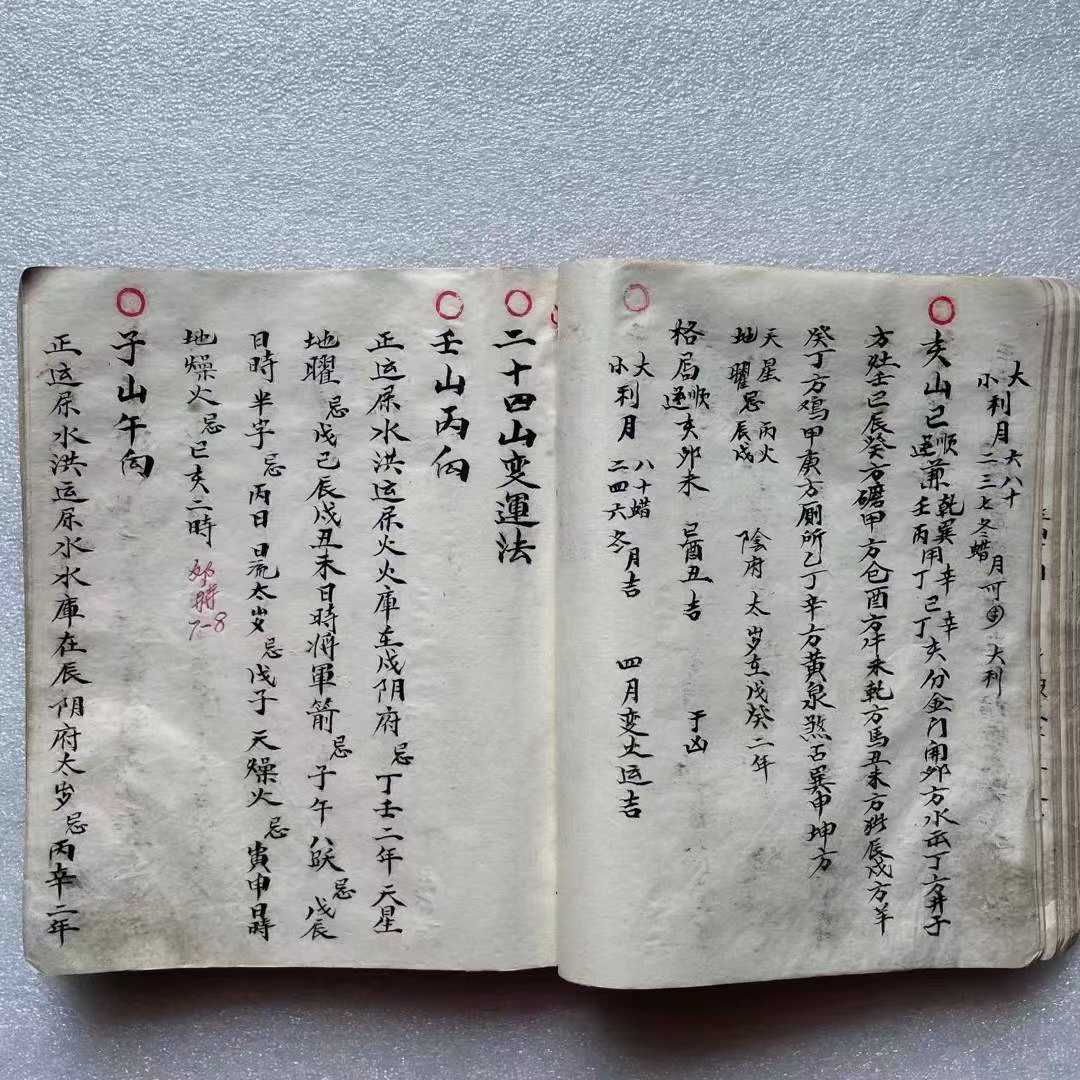 大小利月 六八十 二三七冬蜡 月可 大利
亥山巳 順逆 兼 乾巽 壬丙 用 辛丁 巳 辛丁 亥分金 门開卯方水 丁方井子
方灶壬巳辰癸方礳甲方仓酉方牛未乾方馬丑未方 辰戌方羊
癸丁方鸡甲庚方厕所乙丁辛方黄泉煞占巽申坤方
天星 丙火 地曜忌辰戌 陰府太岁在戊癸二年
格局 順逆 亥卯未 巳酉丑 吉 于凶
大小利月 八十蜡 二四六冬月吉 四月变火运吉
二十四山变運法
壬山丙向
正运屎水洪运屎火火庫在戌阴府忌丁壬二年天星
地曜忌戊己辰戌丑未日時将軍箭忌子午八跃忌戊辰
日時半字忌丙日日流太岁忌戊子天燥火忌寅申日時
地燥火忌巳亥二時 卯時7-8
子山午向
正运屎水洪运屎水水庫在辰阴府太岁忌丙辛二年